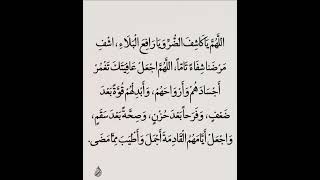 اللَّهُمَّ يَا كَاشِفَ الضُّرِّ وَيَا رَافِعَ الْبَلَاءِ، اشْفِ
مَرْضَنَا شِفَاءً تَامًّا، اللَّهُمَّ اجْعَلْ عَافِيَتَكَ تَغْمُرُ
أَجْسَادَهُمْ وَأَرْوَاحَهُمْ، وَأَبْدِلْهُمْ قُوَّةً بَعْدَ
ضَعْفٍ، وَفَرَحاً بَعْدَ حُزْنٍ، وَصِحَّةً بَعْدَ سَقَمٍ،
وَاجْعَلْ أَيَّامَهُمُ الْقَادِمَةَ أَجْمَلَ وَأَطْيَبَ مِمَّا مَضَى.